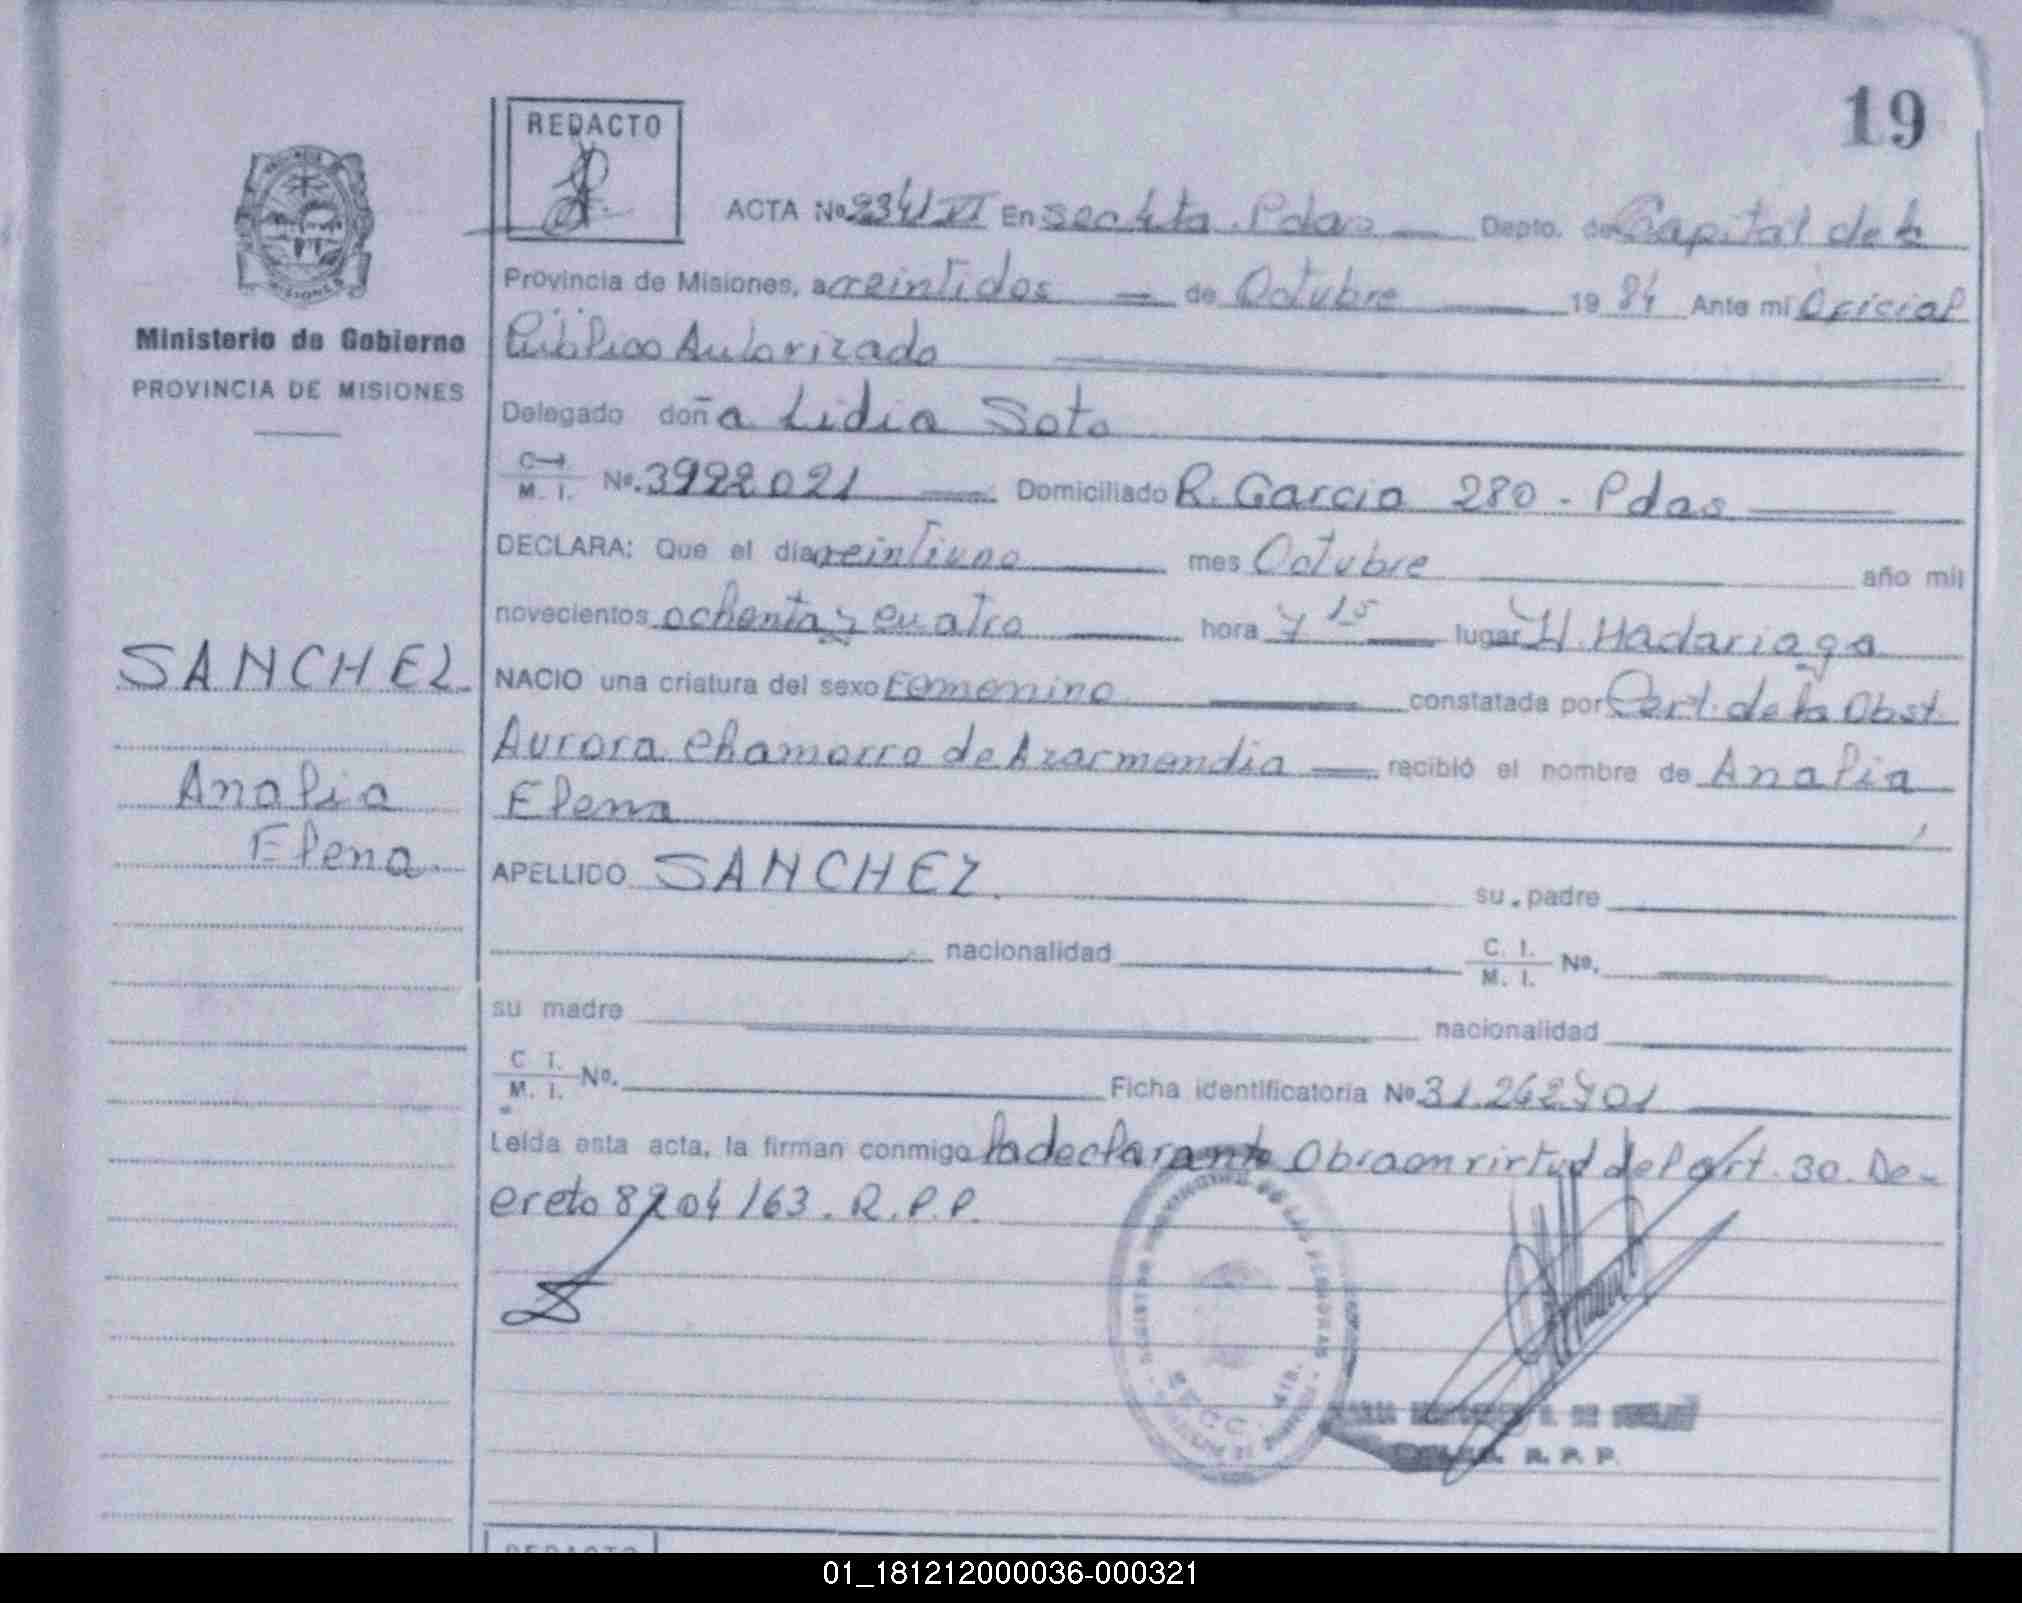 19
REDACTO
ACTA No 2341 VI En sec 4ta. Pdas Depto. de Capital de la
Provincia de Misiones, a veintidos de Octubre 19 84 Ante mi Oficial
Público Autorizado
Ministerio de Gobierno
PROVINCIA DE MISIONES
MISIONES
Delegado doña Lidia Soto
C. I.
M. I. No. 3922021 Domiciliado R. Garcia 280 - Pdas
DECLARA: Que el día veintiuno mes Octubre año mil
novecientos ochenta y cuatro hora 7 15 lugar H. Madariaga
SANCHEZ
NACIO una criatura del sexo Femenino constatada por Cert. de la Obst.
Aurora Chamorro de Azarmendia recibió el nombre de Analia
Elena
Analia
Elena
APELLIDO SANCHEZ su padre
nacionalidad C. I.
M. I. No.
su madre nacionalidad
C I.
M. I. No. Ficha identificatoria No 31.262701
Leida esta acta, la firman conmigo la declarante Obra en virtud del art. 30. De-
creto 8204/63. R.P.P.
DE LAS PERSONAS
SECC. 4ta.
R. P. P.
REDACTO
01_181212000036-000321